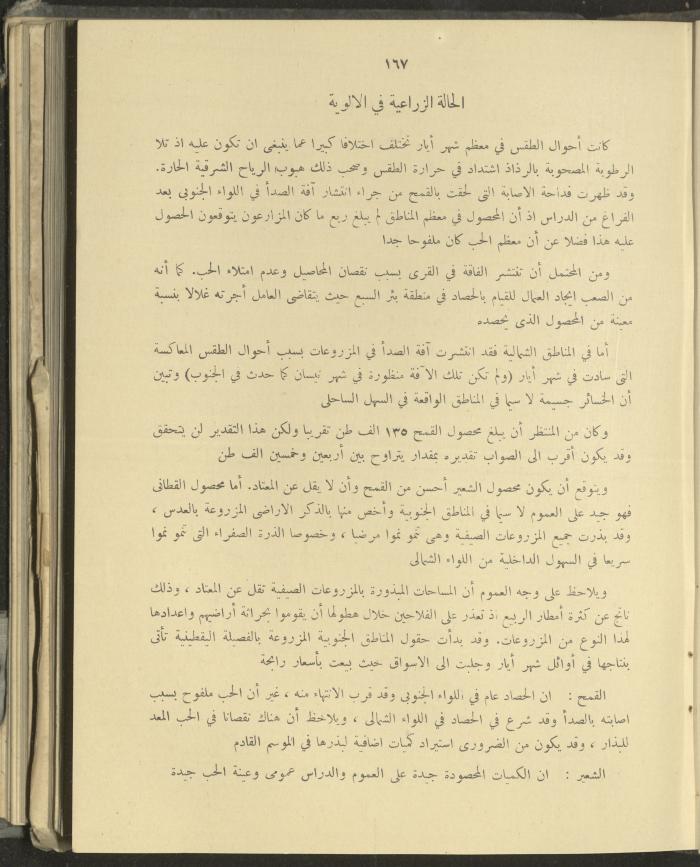 ١٦٧
الحالة الزراعية في الالوية
كانت أحوال الطقس في معظم شهر أيار تختلف اختلافا كبيرا عما ينبغى ان تكون عليه اذ تلا
الرطوبة المصحوبة بالرذاذ اشتداد في حرارة الطقس وصحب ذلك هبوب الرياح الشرقية الحارة.
وقد ظهرت فداحة الاصابة التى لحقت بالقمح من جراء انتشار آفة الصدأ في اللواء الجنوبى بعد
الفراغ من الدراس اذ أن المحصول في معظم المناطق لم يبلغ ربع ما كان المزارعون يتوقعون الحصول
عليه هذا فضلا عن أن معظم الحب كان ملفوحا جدا
ومن المحتمل أن تنتشر الفاقة في القرى بسبب نقصان المحاصيل وعدم امتلاء الحب. كما أنه
من الصعب ايجاد العمال للقيام بالحصاد في منطقة بئر السبع حيث يتقاضى العامل أجرته غلالا بنسبة
معينة من المحصول الذى يحصده
أما في المناطق الشمالية فقد انتشرت آفة الصدأ في المزروعات بسبب أحوال الطقس المعاكسة
التى سادت في شهر أيار (ولم تكن تلك الآفة منظورة في شهر نيسان كما حدث في الجنوب) وتبين
أن الخسائر جسيمة لا سيما في المناطق الواقعة في السهل الساحلى
وكان من المنتظر أن يبلغ محصول القمح ١٣٥ الف طن تقريبا ولكن هذا التقدير لن يتحقق
وقد يكون أقرب الى الصواب تقديره بمقدار يتراوح بين أربعين وخمسين الف طن
ويتوقع أن يكون محصول الشعير أحسن من القمح وأن لا يقل عن المعتاد. أما محصول القطانى
فهو جيد على العموم لا سيما في المناطق الجنوبية وأخص منها بالذكر الاراضى المزروعة بالعدس ،
وقد بذرت جميع المزروعات الصيفية وهى تنمو نموا مرضيا ، وخصوصا الذرة الصفراء التى تنمو نموا
سريعا في السهول الداخلية من اللواء الشمالى
ويلاحظ على وجه العموم أن المساحات المبذورة بالمزروعات الصيفية تقل عن المعتاد ، وذلك
ناتج عن كثرة أمطار الربيع اذ تعذر على الفلاحين خلال هطولها أن يقوموا بحراثة أراضيهم واعدادها
لهذا النوع من المزروعات. وقد بدأت حقول المناطق الجنوبية المزروعة بالفصيلة اليقطينية تأتى
بنتاجها في أوائل شهر أيار وجلبت الى الاسواق حيث بيعت بأسعار رابحة
القمح : ان الحصاد عام في اللواء الجنوبى وقد قرب الانتهاء منه ، غير أن الحب ملفوح بسبب
اصابته بالصدأ وقد شرع في الحصاد في اللواء الشمالى ، ويلاحظ أن هناك نقصانا في الحب المعد
للبذار ، وقد يكون من الضرورى استيراد كميات اضافية لبذرها في الموسم القادم
الشعير : ان الكميات المحصودة جيدة على العموم والدراس عمومى وعينة الحب جيدة